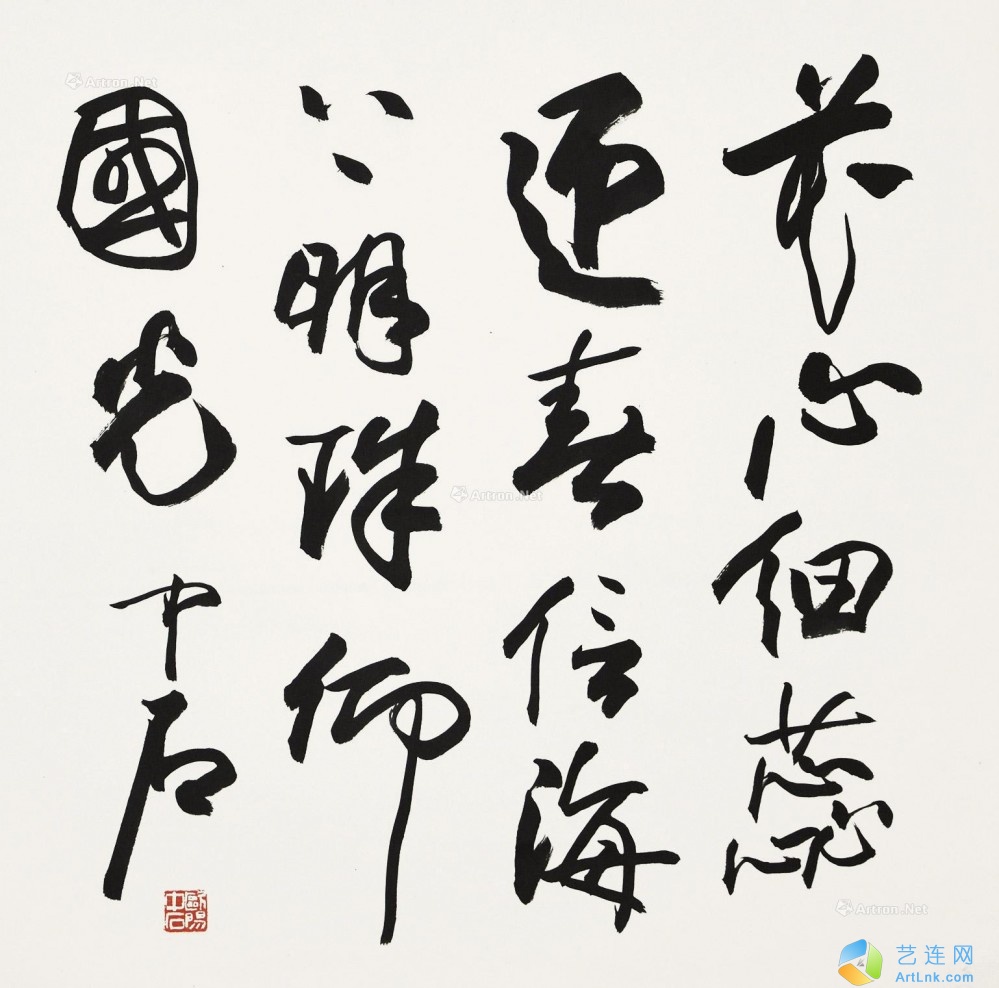 心細蕊
迎春信海
上明珠仰
國光 中石
歐陽中石
Artron.Net
Artron.Net
Artron.Net
艺连网
ArtLnk.com